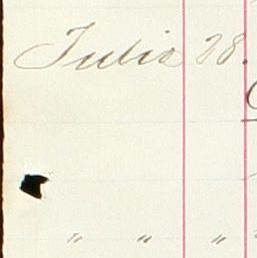 Julio 28.
" " "